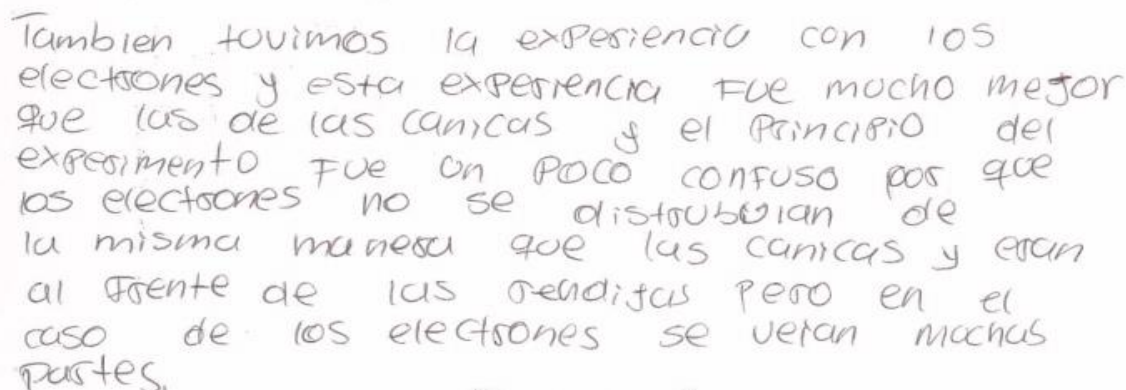 Tambien tuvimos la experiencia con los
electrones y esta experiencia Fue mucho mejor
que las de las canicas y el Principio del
experimento Fue un poco confuso por que
los electrones no se distrubuian de
la misma manera que las canicas y eran
al frente de las rendijas pero en el
caso de los electrones se veian muchas
partes.